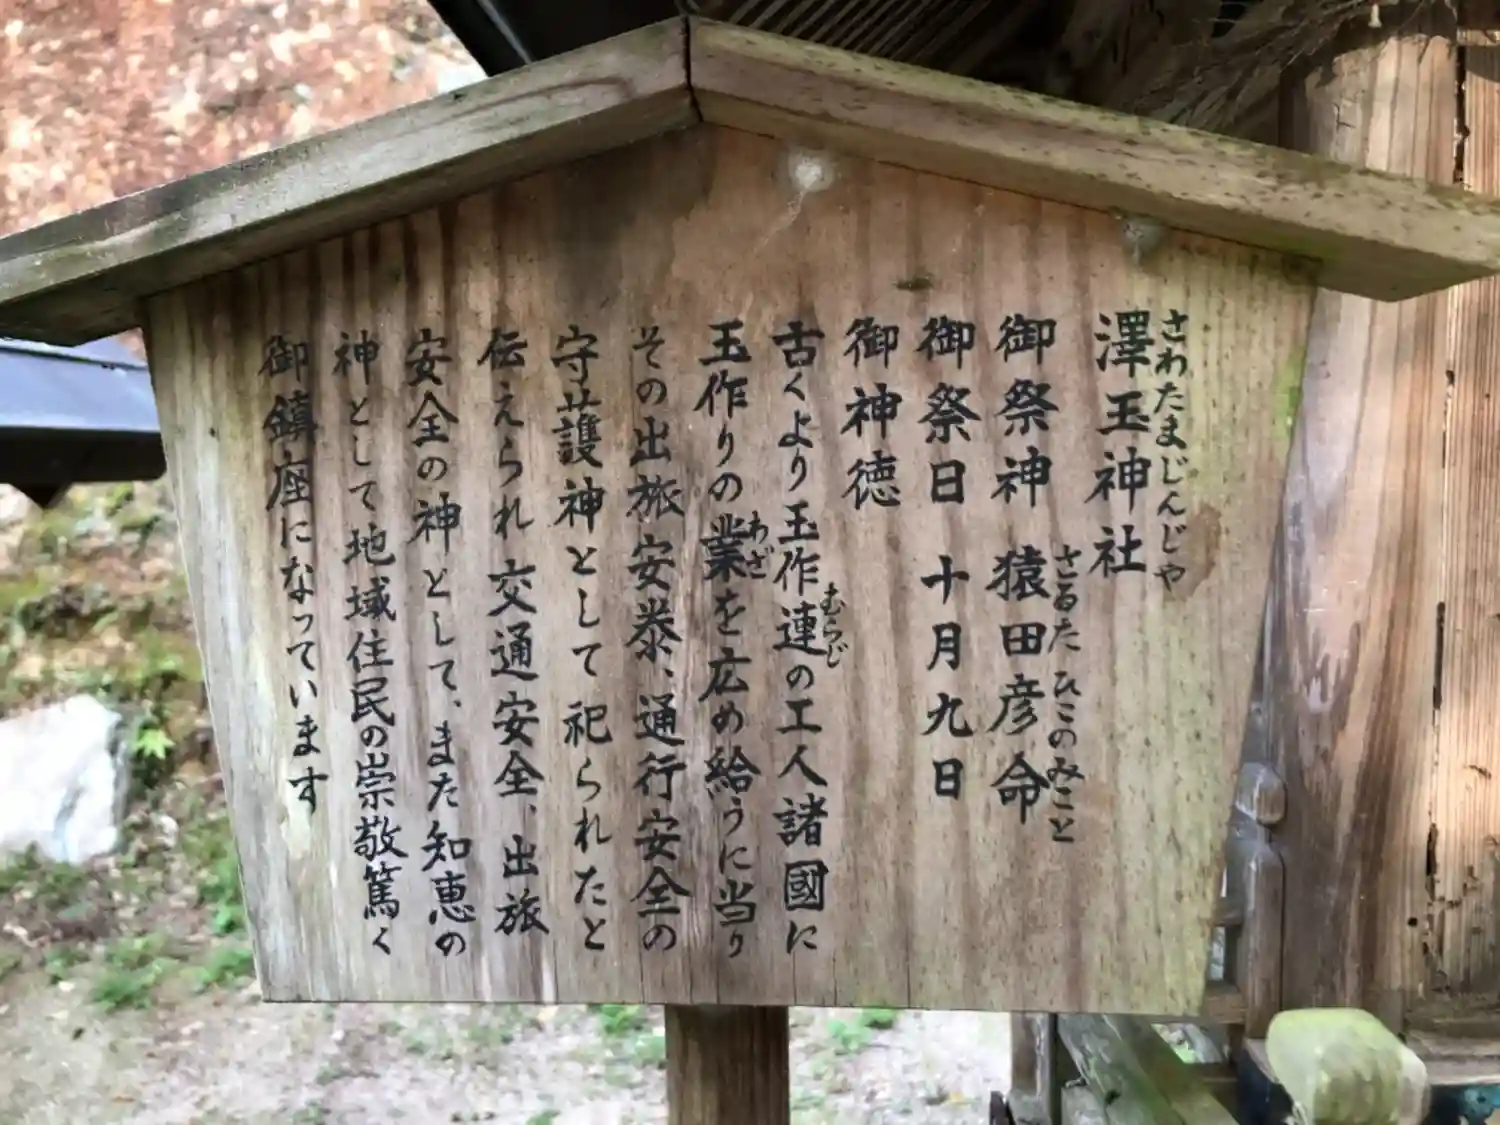 澤玉神社
さわたまじんじゃ
御祭神 猿田彦命
さるたひこのみこと
御祭日 十月九日
御神徳
古くより玉作連の工人諸國に
むらじ
玉作りの業を広め給うに当り
わざ
その出旅安泰、通行安全の
守護神として祀られたと
伝えられ交通安全、出旅
安全の神として、また知恵の
神として地域住民の崇敬篤く
御鎮座になっています